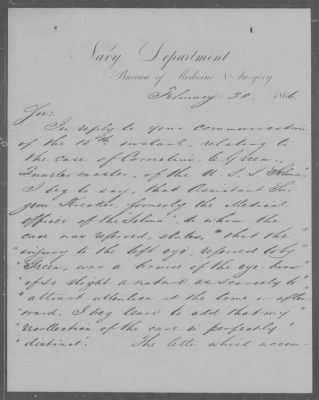 Navy Department
Bureau of Medicine & Surgery
February 20 1866
Sir:
In reply to your communication
of the 15th instant, relating to
the case of Cornelius C. Green
Quartermaster, of the U. S. S. "Selma"
I beg to say, that Assistant Sur
geon formerly the Medical
Officer of the "Selma" to whom the
case was referred, states, "that the
"injury to the left eye, referred to by
"Green, was a bruise of the eye-brow
"of so slight a nature as scarcely to
"attract attention at the time or after
"ward. I beg leave to add that my
"recollection of the case is perfectly
"distinct". The letter which accom-